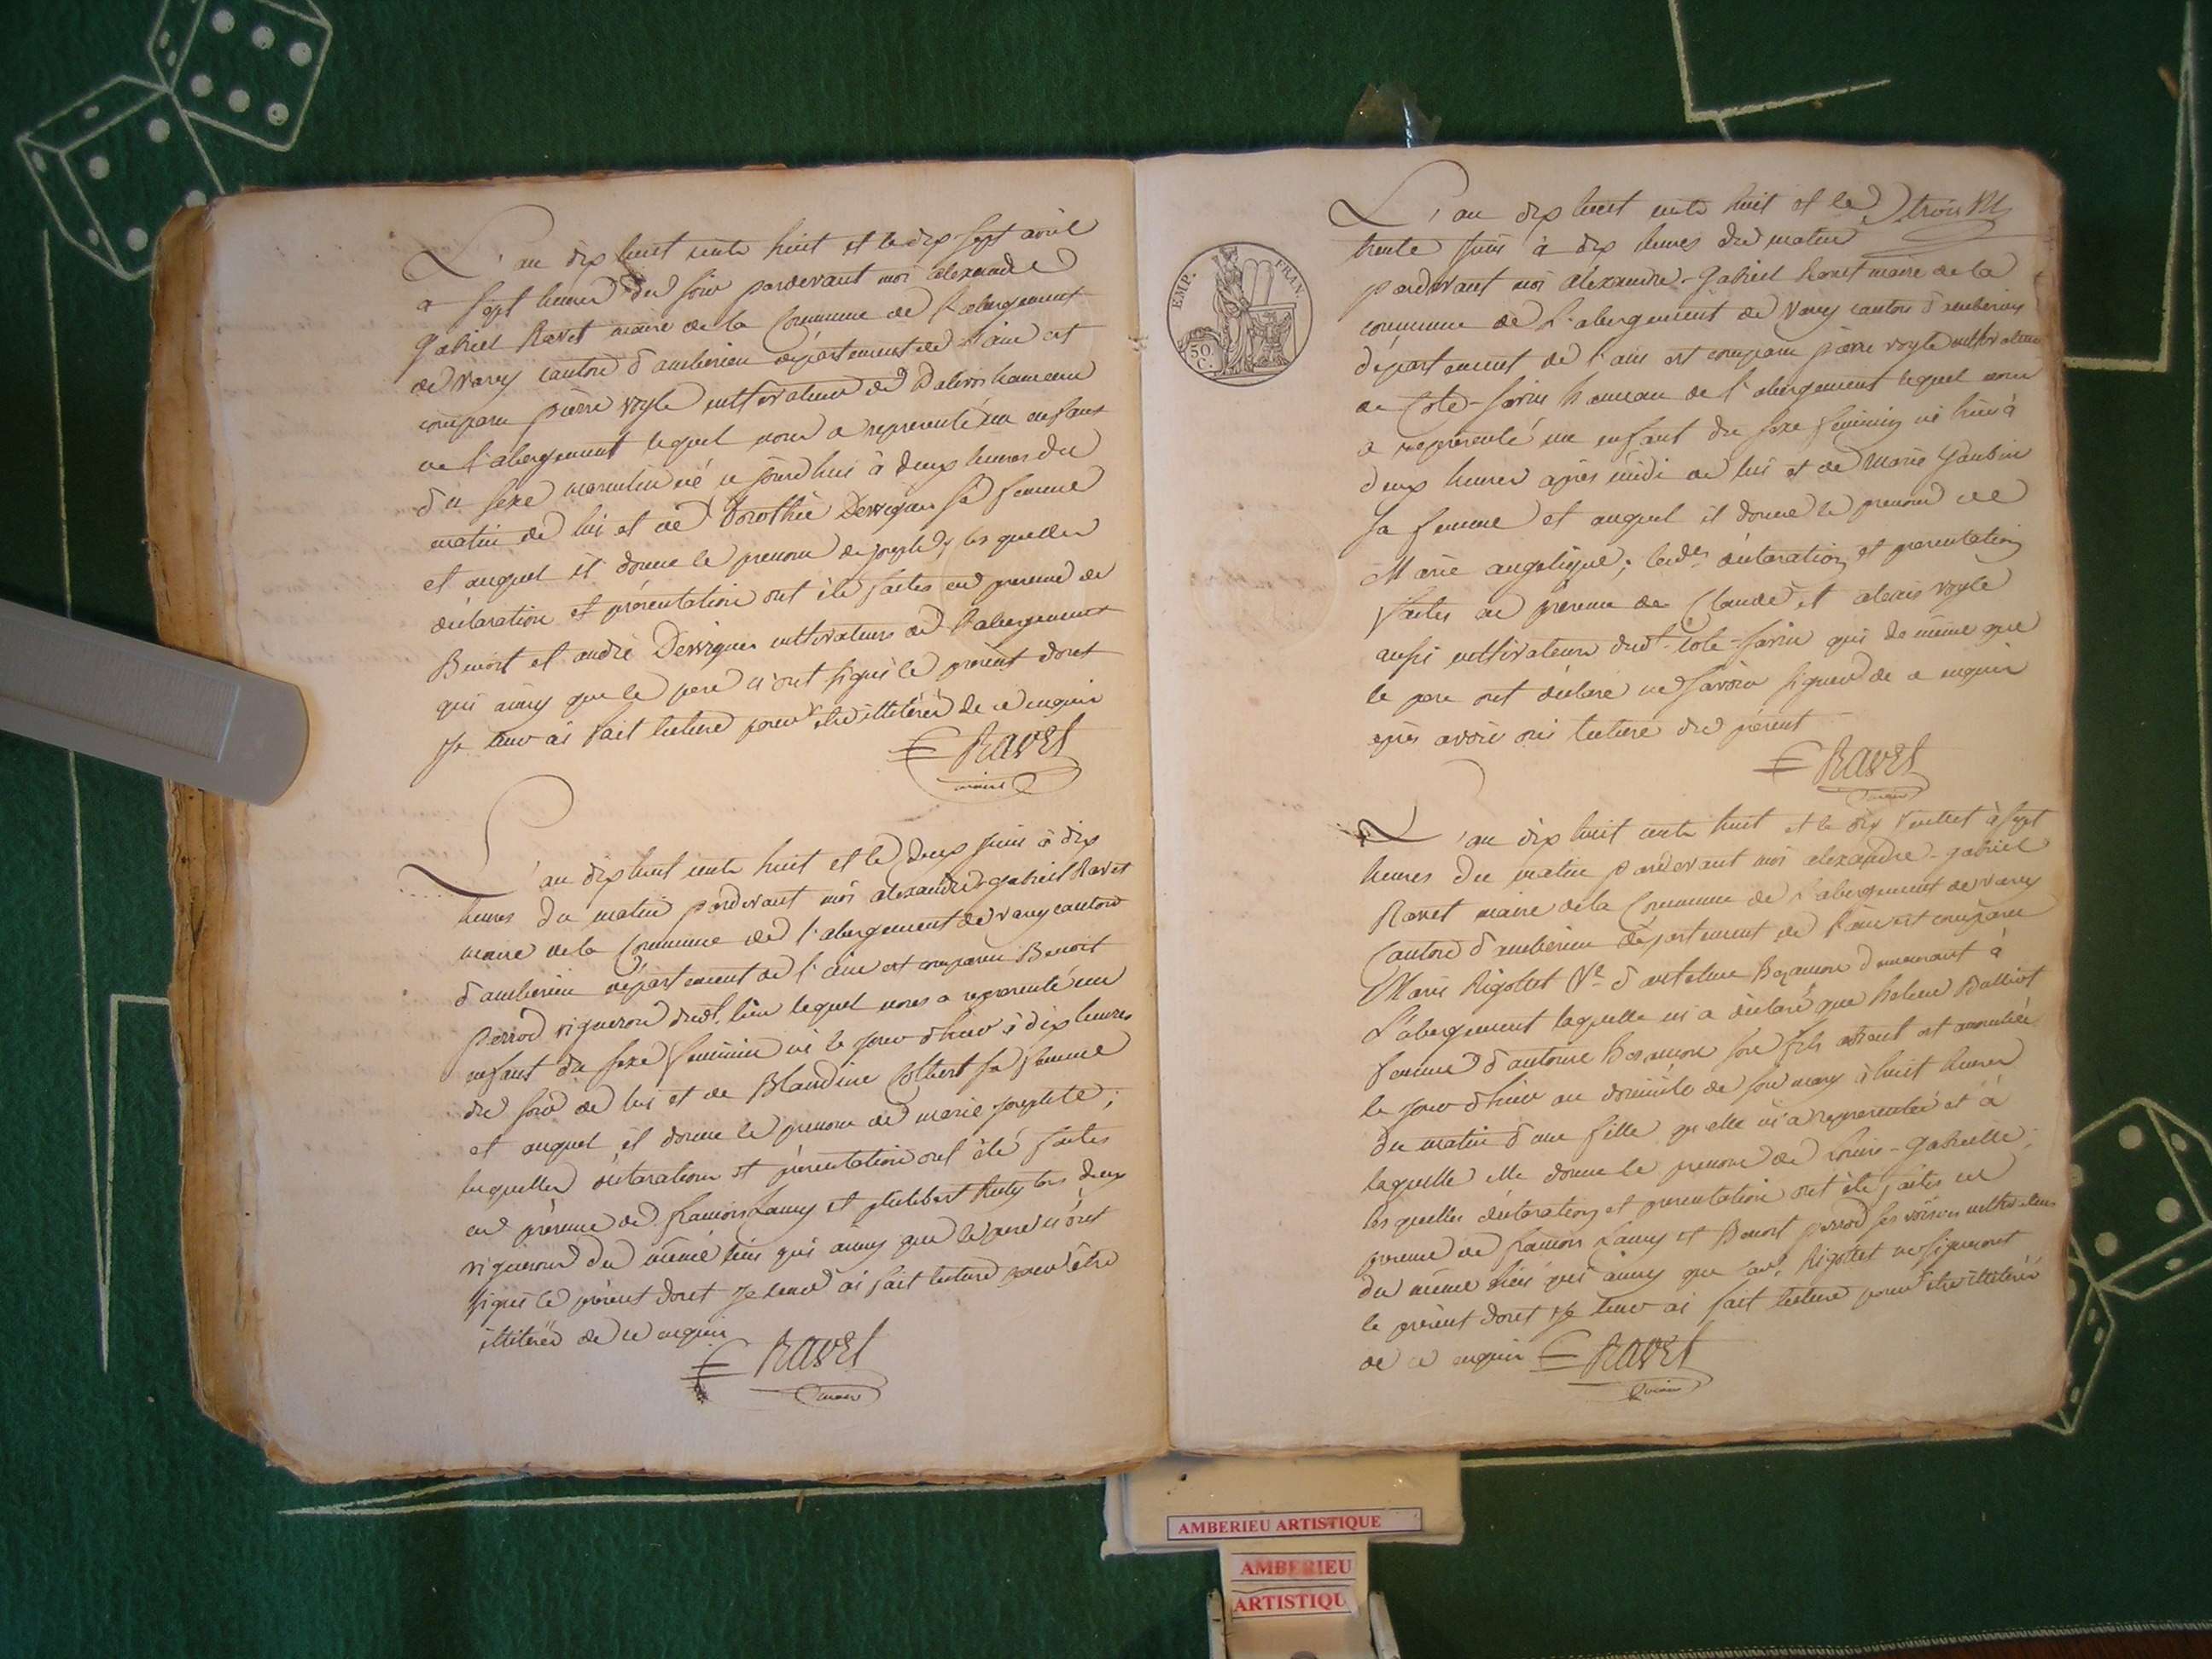 L'an dix huit cents huit et le dix sept avril
a sept heures du soir pardevant moi alexandre
Gabriel Ravet maire de la Commune de l'abergement
de varey canton d'amberieu département de l'ain est
comparu pierre vogle cultivateur de hameau
de l'abergement lequel nous a représenté un enfant
du sexe masculin né ce jourd'hui à deux heures du
matin de lui et de Dorothée Dervigne sa femme
et auquel il donne le prenom de joseph; les quelles
déclaration et présentation ont été faites en presence de
Benoit et andré Dervignes cultivateurs de l'abergement
qui ainsy que le pere n'ont signé le présent dont
Je leur ai fait lecture pour être illitérés de ce enquis
RAVET
maire
L'an dix huit cents huit et le deux juin à dix
heures du matin pardevant moi alexandre gabriel Ravet
maire de la Commune de l'abergement de varey canton
d'amberieu département de l'ain est comparu Benoit
perrod vigneron dudt. lieu lequel nous a representé un
enfant du sexe feminin né le jour d'hier à dix heures
du soir de lui et de Blandine Colbert sa femme
et auquel il donne le prenom de marie josephte;
lesquelles déclaration et présentation ont été faites
en présence de francois Lamy et philibert tous deux
vignerons du même lieu qui ainsy que le pere n'ont
signé le présent dont Je leur ai fait lecture pour être
illitérés de ce enquis
RAVET
maire
trois
L'an dix huit cents huit et le
trente juin à dix heures du matin
pardevant moi alexandre-Gabriel Ravet maire de la
commune de L'abergement de Varey canton d'amberieu
département de l'ain est comparu pierre vogle cultivateur
de Cote-Savin hameau de l'abergement lequel nous
a représenté un enfant du sexe feminin né hier à
deux heures après midi de lui et de Marie
sa femme et auquel il donne le prenom de
Marie angelique; lesdes déclaration et presentation
faites en présence de Claude et alexis vogle
aussi cultivateurs dudt cote-savin qui de même que
le pere ont déclaré ne savoir signer de ce enquis
après avoir oui lecture du présent
RAVET
maire
EMP. FRAN.
50 C.
L'an dix huit cents huit et le dix Juillet à sept
heures du matin pardevant moi alexandre-gabriel
Ravet maire de la Commune de l'abergement de varey
Canton d'amberieu département de l'ain est comparue
Marie Rigottet Ve d'antelme Bezamon demeurant à
L'abergement laquelle m'a déclaré que helene Balliot
femme d'antoine Bezamon son fils absent est accouchée
le jour d'hier au domicile de son mary à huit heures
du matin d'une fille qu'elle m'a representée et à
laquelle elle donne le prenom de Louise-Gabrielle;
les quelles déclaration et presentation ont été faites en
presence de francois Lamy et Benoit perrod ses voisins cultivateurs
du même lieu qui ainsy que lade Rigottet ne signeront
le présent dont Je leur ai fait lecture pour être illitérés
de ce enquis RAVET
maire
AMBERIEU ARTISTIQUE
AMBERIEU
ARTISTIQU